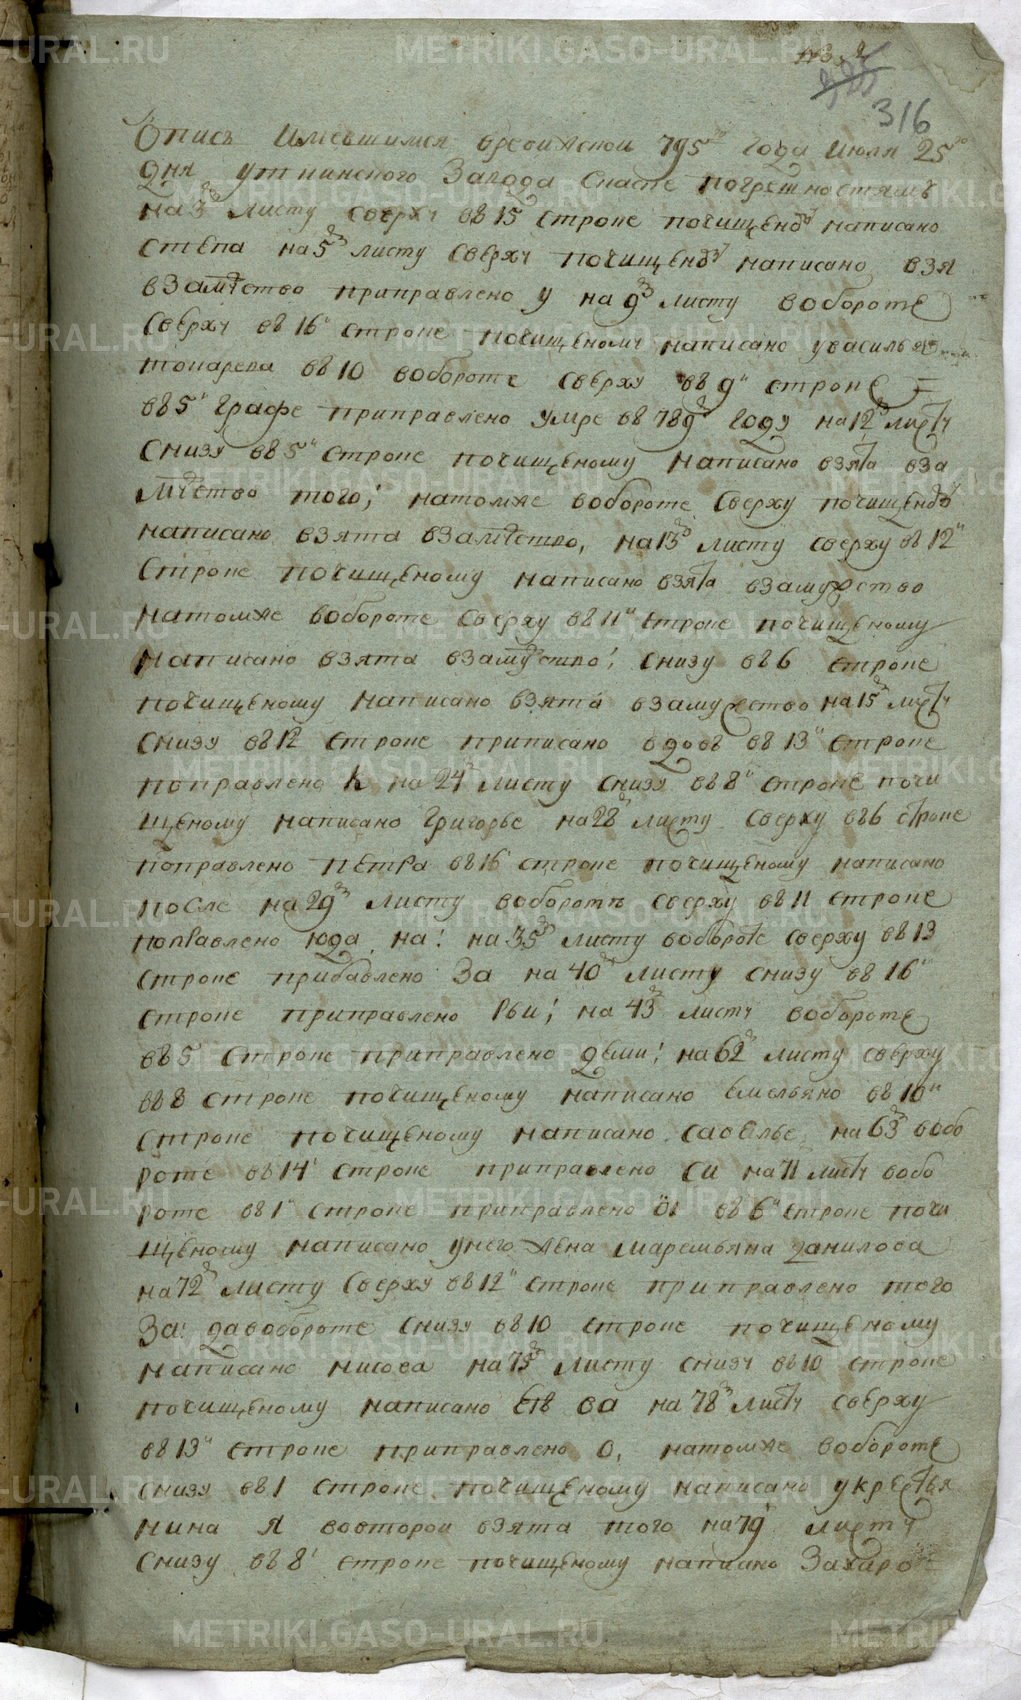 № 2
325
316
Опись имевшимся вревизской 795го года июля 25го
дня уткинского Завода Сказке погрешностямъ
на 3м листу сверху въ 15 строке почищеному написано
степа на 5м листу Сверху почищеному написано взя
взамуство приправлено у на 9м листу вобороте
Сверху въ 16и строке почищеному написано увасилья
токарева въ 10 вобороте сверху въ 9и строке =
въ 5и графе приправлено умре въ 789м году на 12м листу
Снизу въ 5и строке почищеному написано взята вза
муство того; натомже вобороте Сверху почищеному
написано взята взамуство, на 13м листу сверху въ 12и
Строке почищеному написано взята взамужство
натомже вобороте Сверху въ 11и строке почищеному
написано взята взамуство; снизу въ 6 строке
почищеному написано взята взамужество на 15м листу
снизу въ 12 строке приписано вдовъ въ 13и строке
поправлено к на 24 листу снизу въ 8и строке почи
щеному написано Григорье на 28 листу Сверху въ 6 строке
поправлено петра въ 16 строке почищеному написано
после на 29м листу вобороте сверху въ 11 строке
поправлено года на: на 35м листу вобороте сверху въ 13
строке прибавлено За на 40м листу снизу въ 16и
строке приправлено рьи; на 43м листу вобороте
въ 5 строке приправлено деми; на 62м листу сверху
въ 8 строке почищеному написано Емельяно въ 10и
строке почищеному написано савелье на 63м вобо
роте въ 14 строке приправлено си на 71 листу вобо
роте въ 1и строке приправлено въ 6и строке почи
щеному написано унего жена маремьяна данилова
на 72м листу Сверху въ 12и строке приправлено того
За: давобороте снизу въ 10 строке почищеному
написано на 75м листу снизу въ 10 строке
почищеному написано ва на 78м листу сверху
въ 13и строке приправлено о, натомже вобороте
снизу въ 1 строке почищеному написано укрестья
нина я вовторои взята того на 79 листу
снизу въ 8 строке почищеному написано Захаро=
METRIKI.GASO-URAL.RU